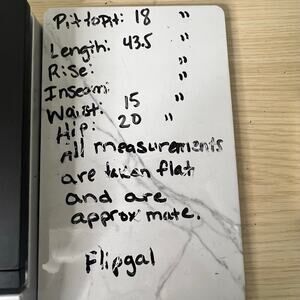 Pit to pit: 18 "
Length: 43.5 "
Rise: "
Inseam: "
Waist: 15 "
Hip: 20 "
All measurements
are taken flat
and are
approximate.
Flipgal